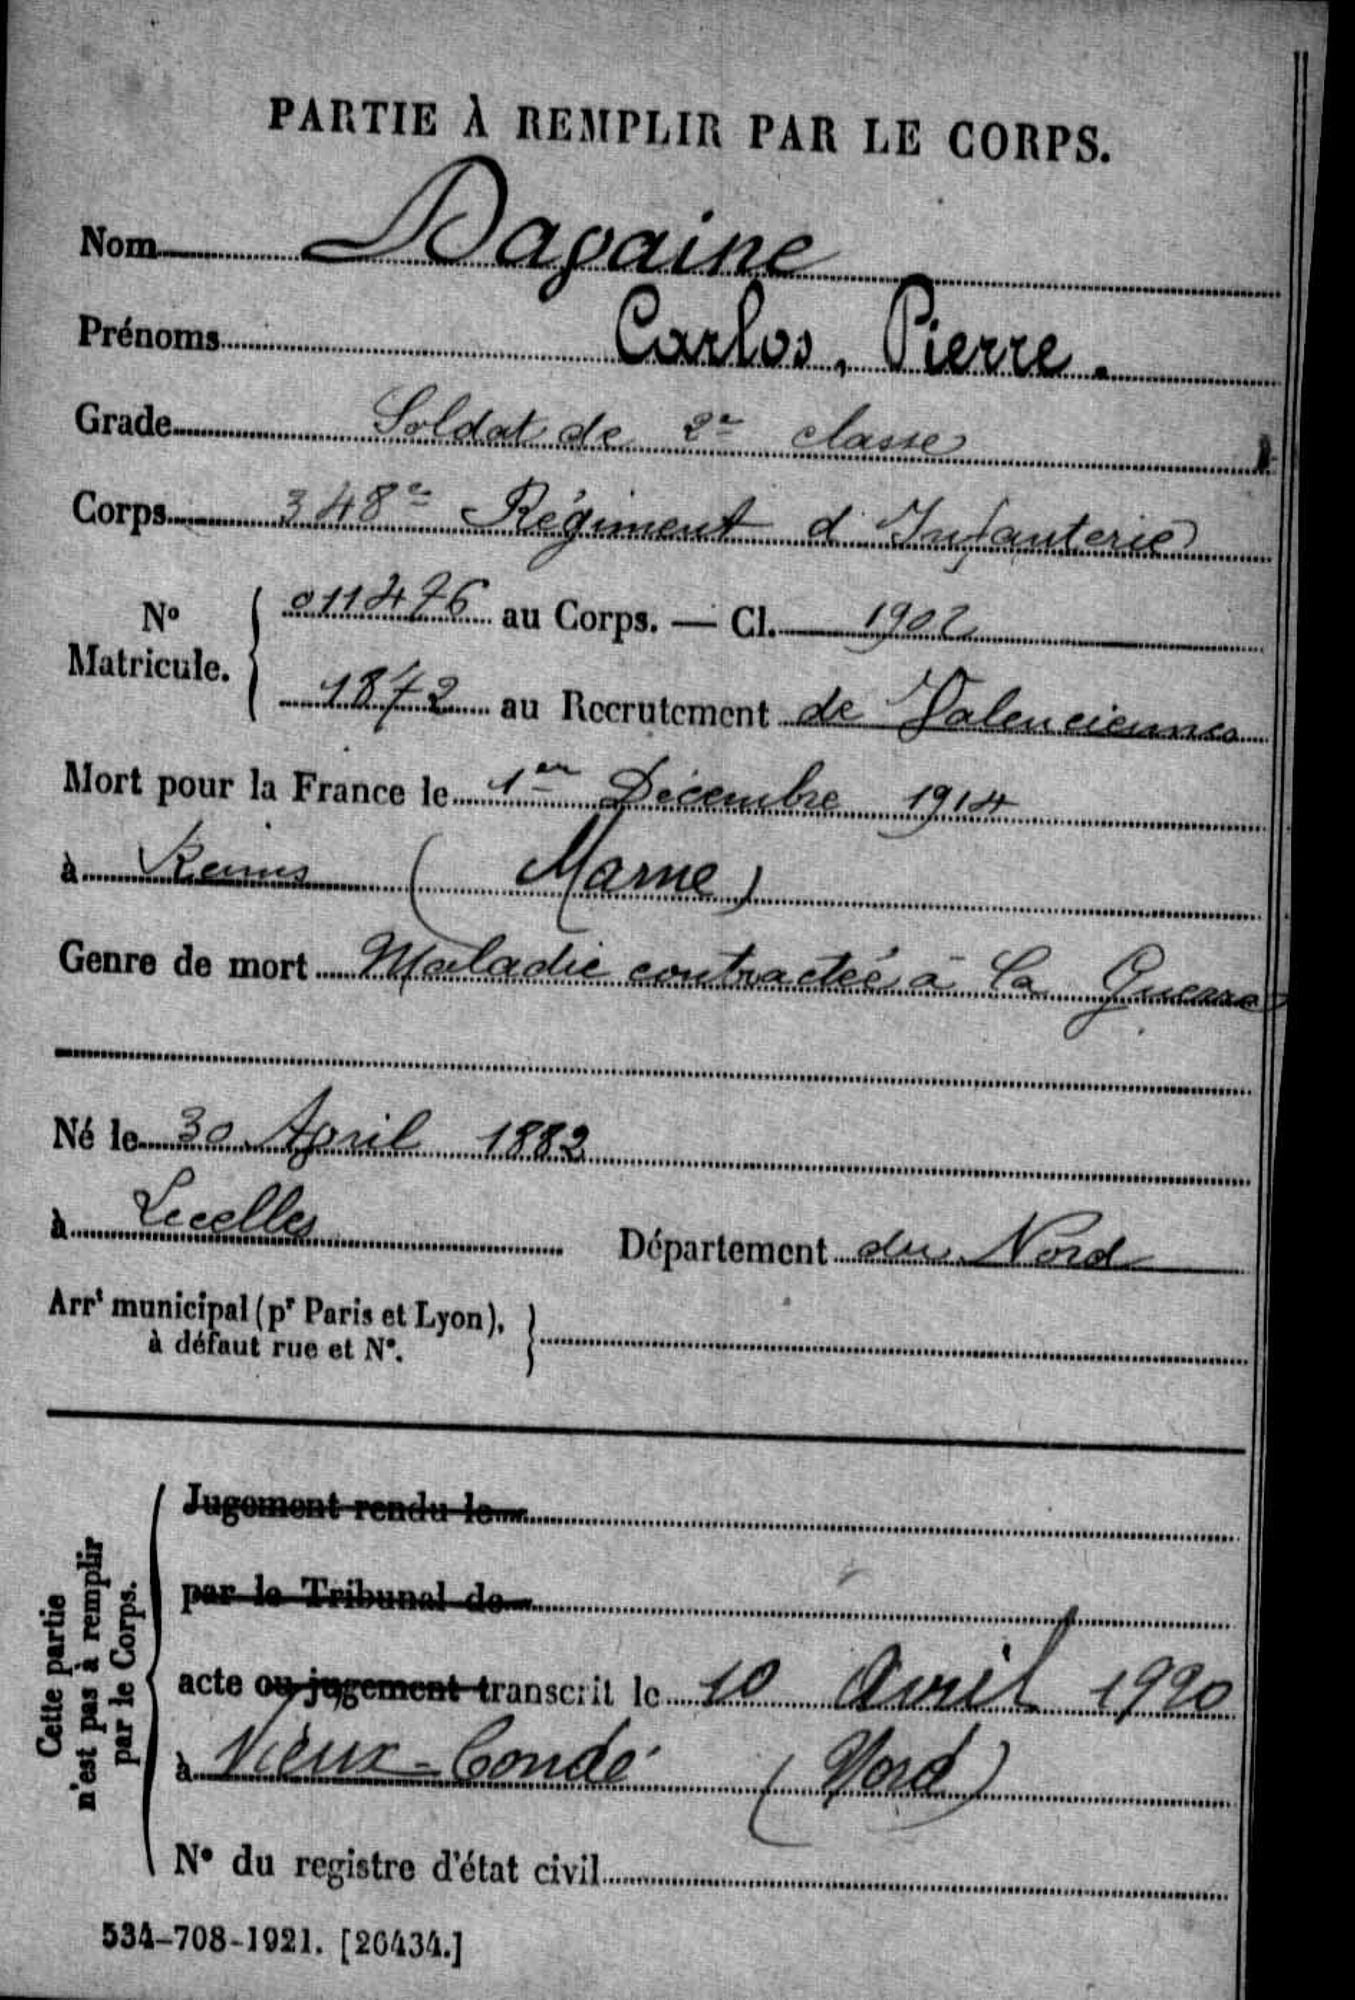 PARTIE À REMPLIR PAR LE CORPS.
Nom Dagaine
Prénoms Carlos, Pierre.
Grade Soldat de 2e classe
Corps 348e Régiment d'Infanterie
No Matricule. 011476 au Corps. — Cl. 1902
1872 au Recrutement de Valenciennes
Mort pour la France le 1er Décembre 1914
à Reims (Marne)
Genre de mort Maladie contractée à la Guerre
Né le 30 April 1882
à Lecelles Département du Nord
Arrt municipal (pr Paris et Lyon), à défaut rue et No.
Cette partie n'est pas à remplir par le Corps.
Jugement rendu le
par le Tribunal de
acte ou jugement transcrit le 10 Avril 1920
à Vieux-Condé (Nord)
No du registre d'état civil
534-708-1921. [26434.]